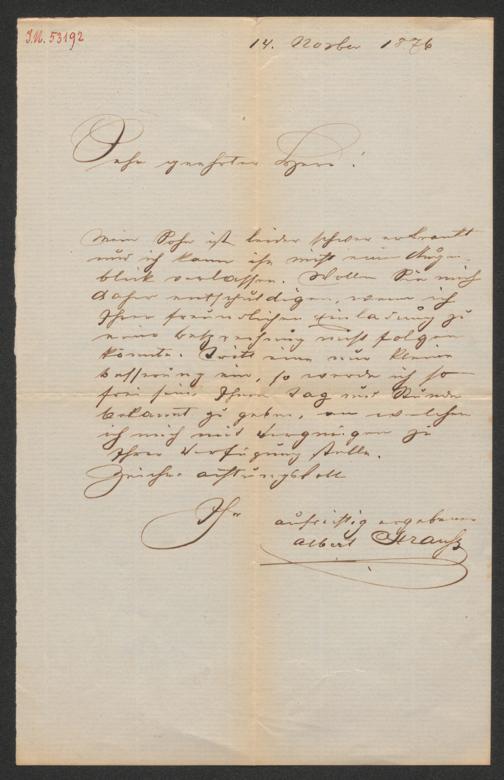 I.N. 53192
14. Novber 1876
Sehr geehrter Herr!
Mein Sohn ist leider schwer erkrankt
und ich kann ihn nicht einen Augen-
blick verlassen. Wollen Sie mich
daher entschuldigen, wenn ich
Ihrer freundlichen Einladung zu
einer Besprechung nicht folgen
konnte. Tritt eine nur kleine
Besserung ein, so werde ich so
frei sein Ihnen Tag und Stunde
bekannt zu geben, an welchen
ich mich mit Vergnügen zu
Ihrer Verfügung stelle.
Zeichne achtungsvoll
Ihr aufrichtig ergebener
Albert Strauß